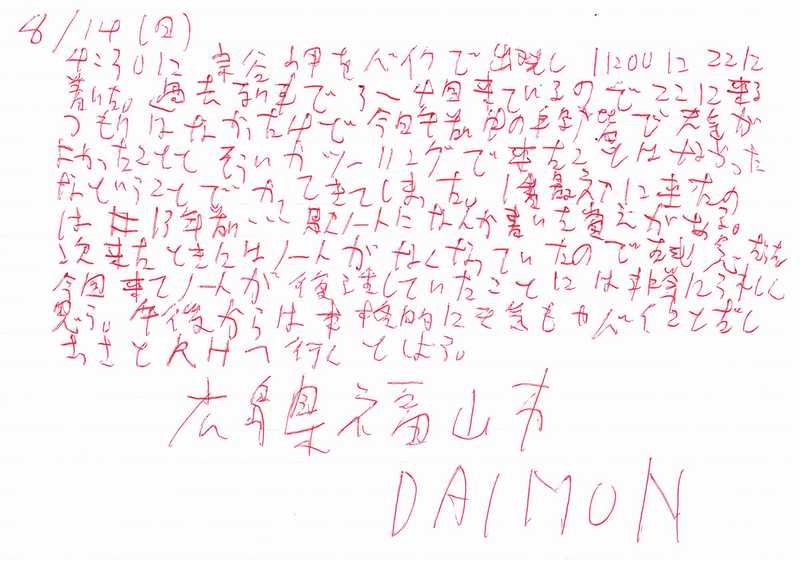 8/14(日)
4ころに宗谷岬をバイクで出発し11:00にココに
着いた。過去まででも3〜4回来ているのでココに来る
つもりはなかったけで今回年前の で天気が
よかったことと そういやツーリングで来たこともなかった
なということでかってきてしまった。1番最初に来たの
は 13年前…思いノートになんか書いた覚えがある。
次来たときにはノートがなくなっていたので
今回来てノートが復活していたことには非常にうれしく
思う。午後からは本格的に天気もヤバイことだし
さっさと 行くとしよう。
広島県福山市
DAIMON